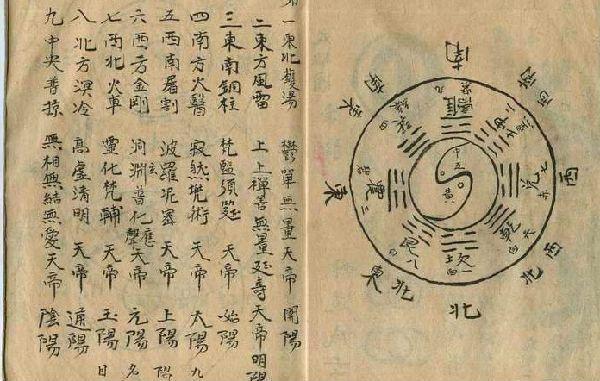 一東北鑊湯 鬱單無量天帝 開陽
二東方風雷 上上禪善無量延壽天帝明陽
三東南銅柱 梵監須延 天帝 始陽
四南方火醫 寂然兜術 天帝 太陽 九
五西南屠割 波羅尼蜜 天帝 上陽 陽
六西方金剛 洞玄淵普化應聲天帝 元陽 名
七西北火車 靈化梵輔 天帝 玉陽 日
八北方溟冷 高虛清明 天帝 通陽
九中央普掠 無相無結無愛天帝 陰陽
南
西南
西
西北
北
東北
東
東南
離 九
兌 七
乾 六
坎 一
艮 八
震 三
中五